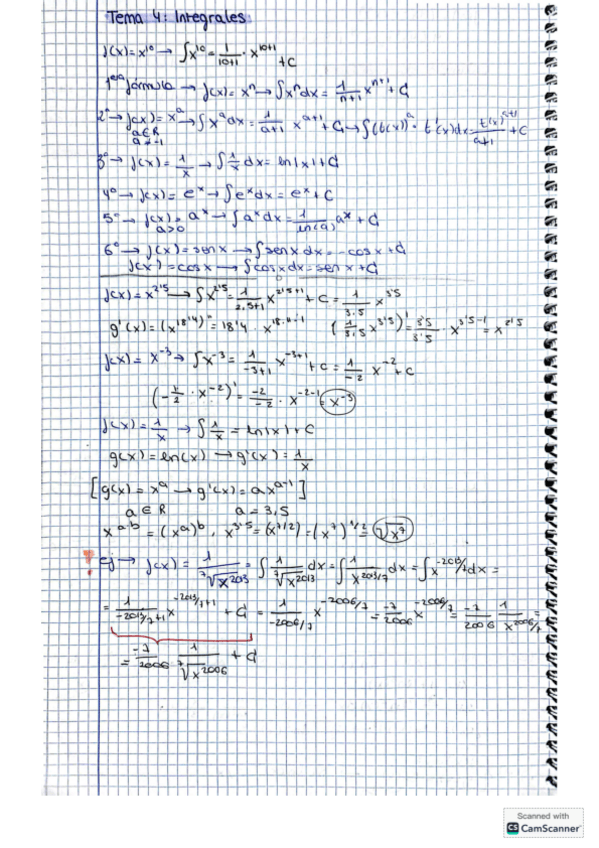 Tema 4: Integrales
f(x)=x^10 → ∫x^10 = 1/(10+1) · x^(10+1) + C
1ª fórmula → f(x)= x^n → ∫x^n dx = 1/(n+1) x^(n+1) + C
2º → f(x)= x^a → ∫x^a dx = 1/(a+1) x^(a+1) + C → ∫(f(x))^a · f'(x)dx = f(x)^(a+1)/(a+1) + C
a∈R
a≠-1
3º → f(x)= 1/x → ∫1/x dx = ln|x|+C
4º → f(x)= e^x → ∫e^x dx = e^x + C
5º → f(x)= a^x → ∫a^x dx = 1/ln(a) a^x + C
a>0
6º → f(x)= sen x → ∫sen x dx = -cos x + C
f(x)= cos x → ∫cos x dx = sen x + C
f(x)= x^2'5 → ∫x^2'5 = 1/(2,5+1) x^(2'5+1) + C = 1/3.5 x^3'5
g'(x)= (x^18'4)' = 18'4 · x^(18'4-1) (1/3.5 x^3'5)' = 3'5/3'5 · x^(3'5-1) = x^2'5
f(x)= x^-3 → ∫x^-3 = 1/(-3+1) x^(-3+1) + C = 1/-2 x^-2 + C
(-1/2 · x^-2)' = -2/-2 · x^(-2-1) = x^-3
f(x)= 1/x → ∫1/x = ln|x|+C
g(x)= ln(x) → g'(x)= 1/x
[g(x)= x^a → g'(x)= ax^(a-1)]
a∈R a=3,5
x^(a·b) = (x^a)^b, x^3'5 = (x^7/2) = (x^7)^1/2 = √x^7
! ej → f(x)= 1/⁷√x^2013 = ∫1/⁷√x^2013 dx = ∫1/x^(2013/7) dx = ∫x^(-2013/7) dx =
= 1/(-2013/7+1) x^(-2013/7+1) + C = 1/(-2006/7) x^(-2006/7) = -7/2006 x^(-2006/7) = -7/2006 1/x^(2006/7) =
= -7/2006 · 1/⁷√x^2006 + C
Scanned with
CS CamScanner